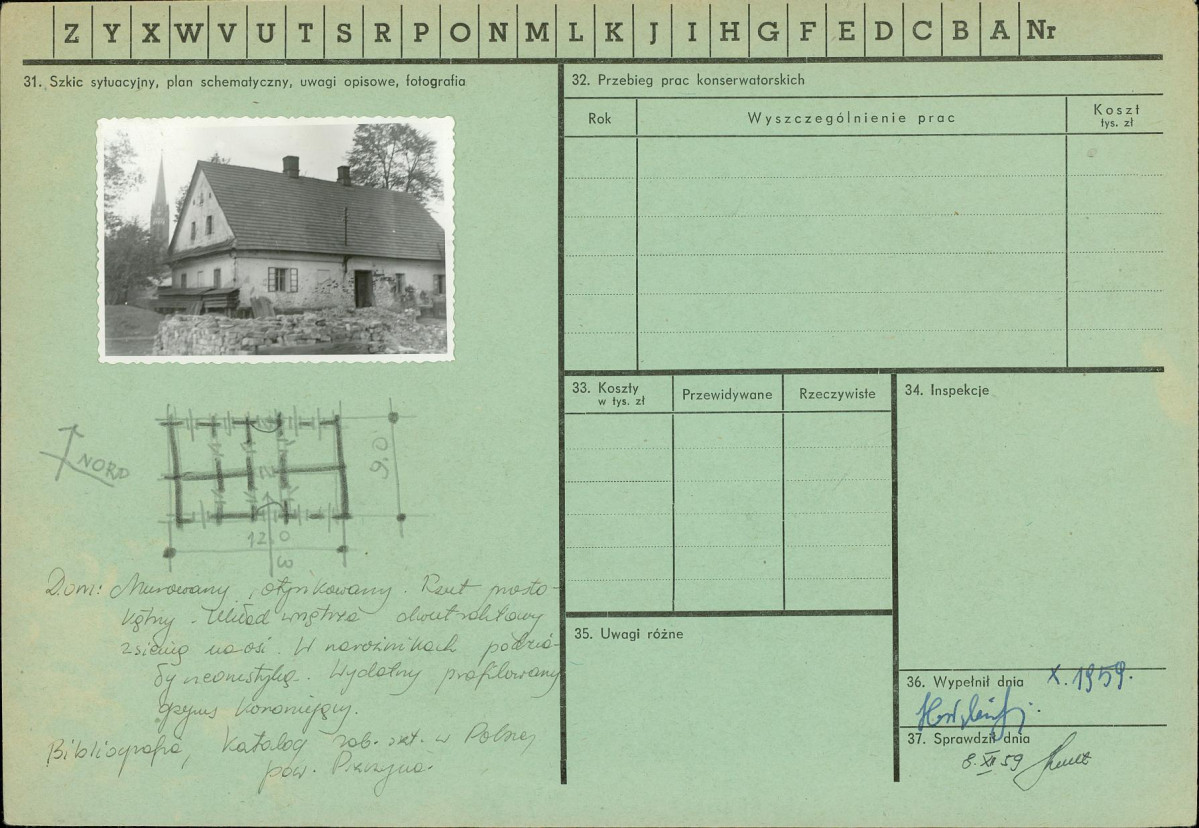 Z Y X W V U T S R P O N M L K J I H G F E D C B A Nr
31. Szkic sytuacyjny, plan schematyczny, uwagi opisowe, fotografia
NORD
9,0
12,0
Dom: Murowany, otynkowany. Rzut prosto-
kątny. Układ wnętrza dwutraktowy
z sienią na osi. W narożnikach podzia-
ły
Wydatny profilowany
gzyms koronujący.
Bibliografia, Katalog zab. szt. w Polsce,
pow. Pszczyna.
32. Przebieg prac konserwatorskich
Rok
Wyszczególnienie prac
Koszt
tys. zł
33. Koszty
w tys. zł
Przewidywane
Rzeczywiste
34. Inspekcje
35. Uwagi różne
36. Wypełnił dnia X. 1959.
37. Sprawdził dnia
8. XII 59